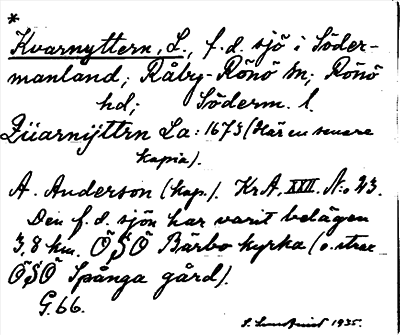 *
Kvarnyttern, L., f.d. sjö i Söder-
manland; Råby-Rönö sn; Rönö
hd; Söderm. l.
Qüarnÿttrn La: 1673 (Här en senare
kopia).
A. Anderson (kap.). KrA, XXII. N:o 23.
Den f.d. sjön har varit belägen
3,8 km. ÖSÖ Bärbo kyrka (o. strax
ÖSÖ Spånga gård).
G. 66.
1935.